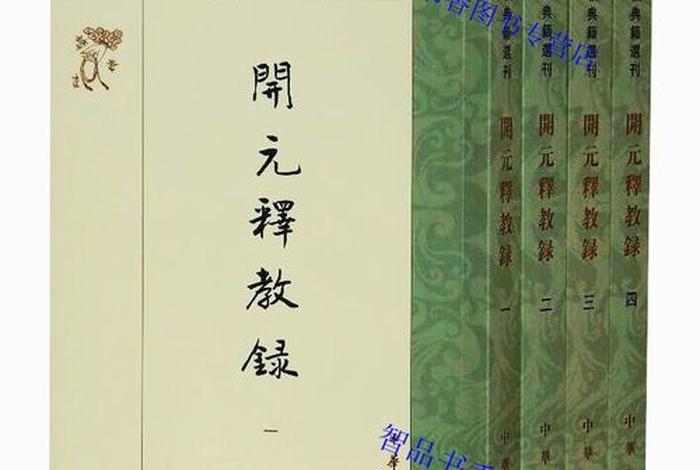 香图书专营店
開元釋教録
一
典籍選刊
開元釋教録
一
中華
典籍選刊
開元釋教録
二
中華
典籍選刊
開元釋教録
三
中華
典籍選刊
開元釋教録
四
中華
智品书